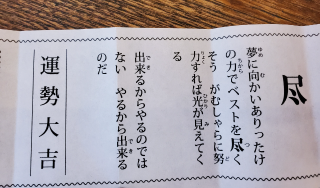 尽
夢に向かいありったけ
の力でベストを尽く
そう がむしゃらに努
力すれば光が見えてく
る
出来るからやるのでは
ない やるから出来る
のだ
運勢大吉